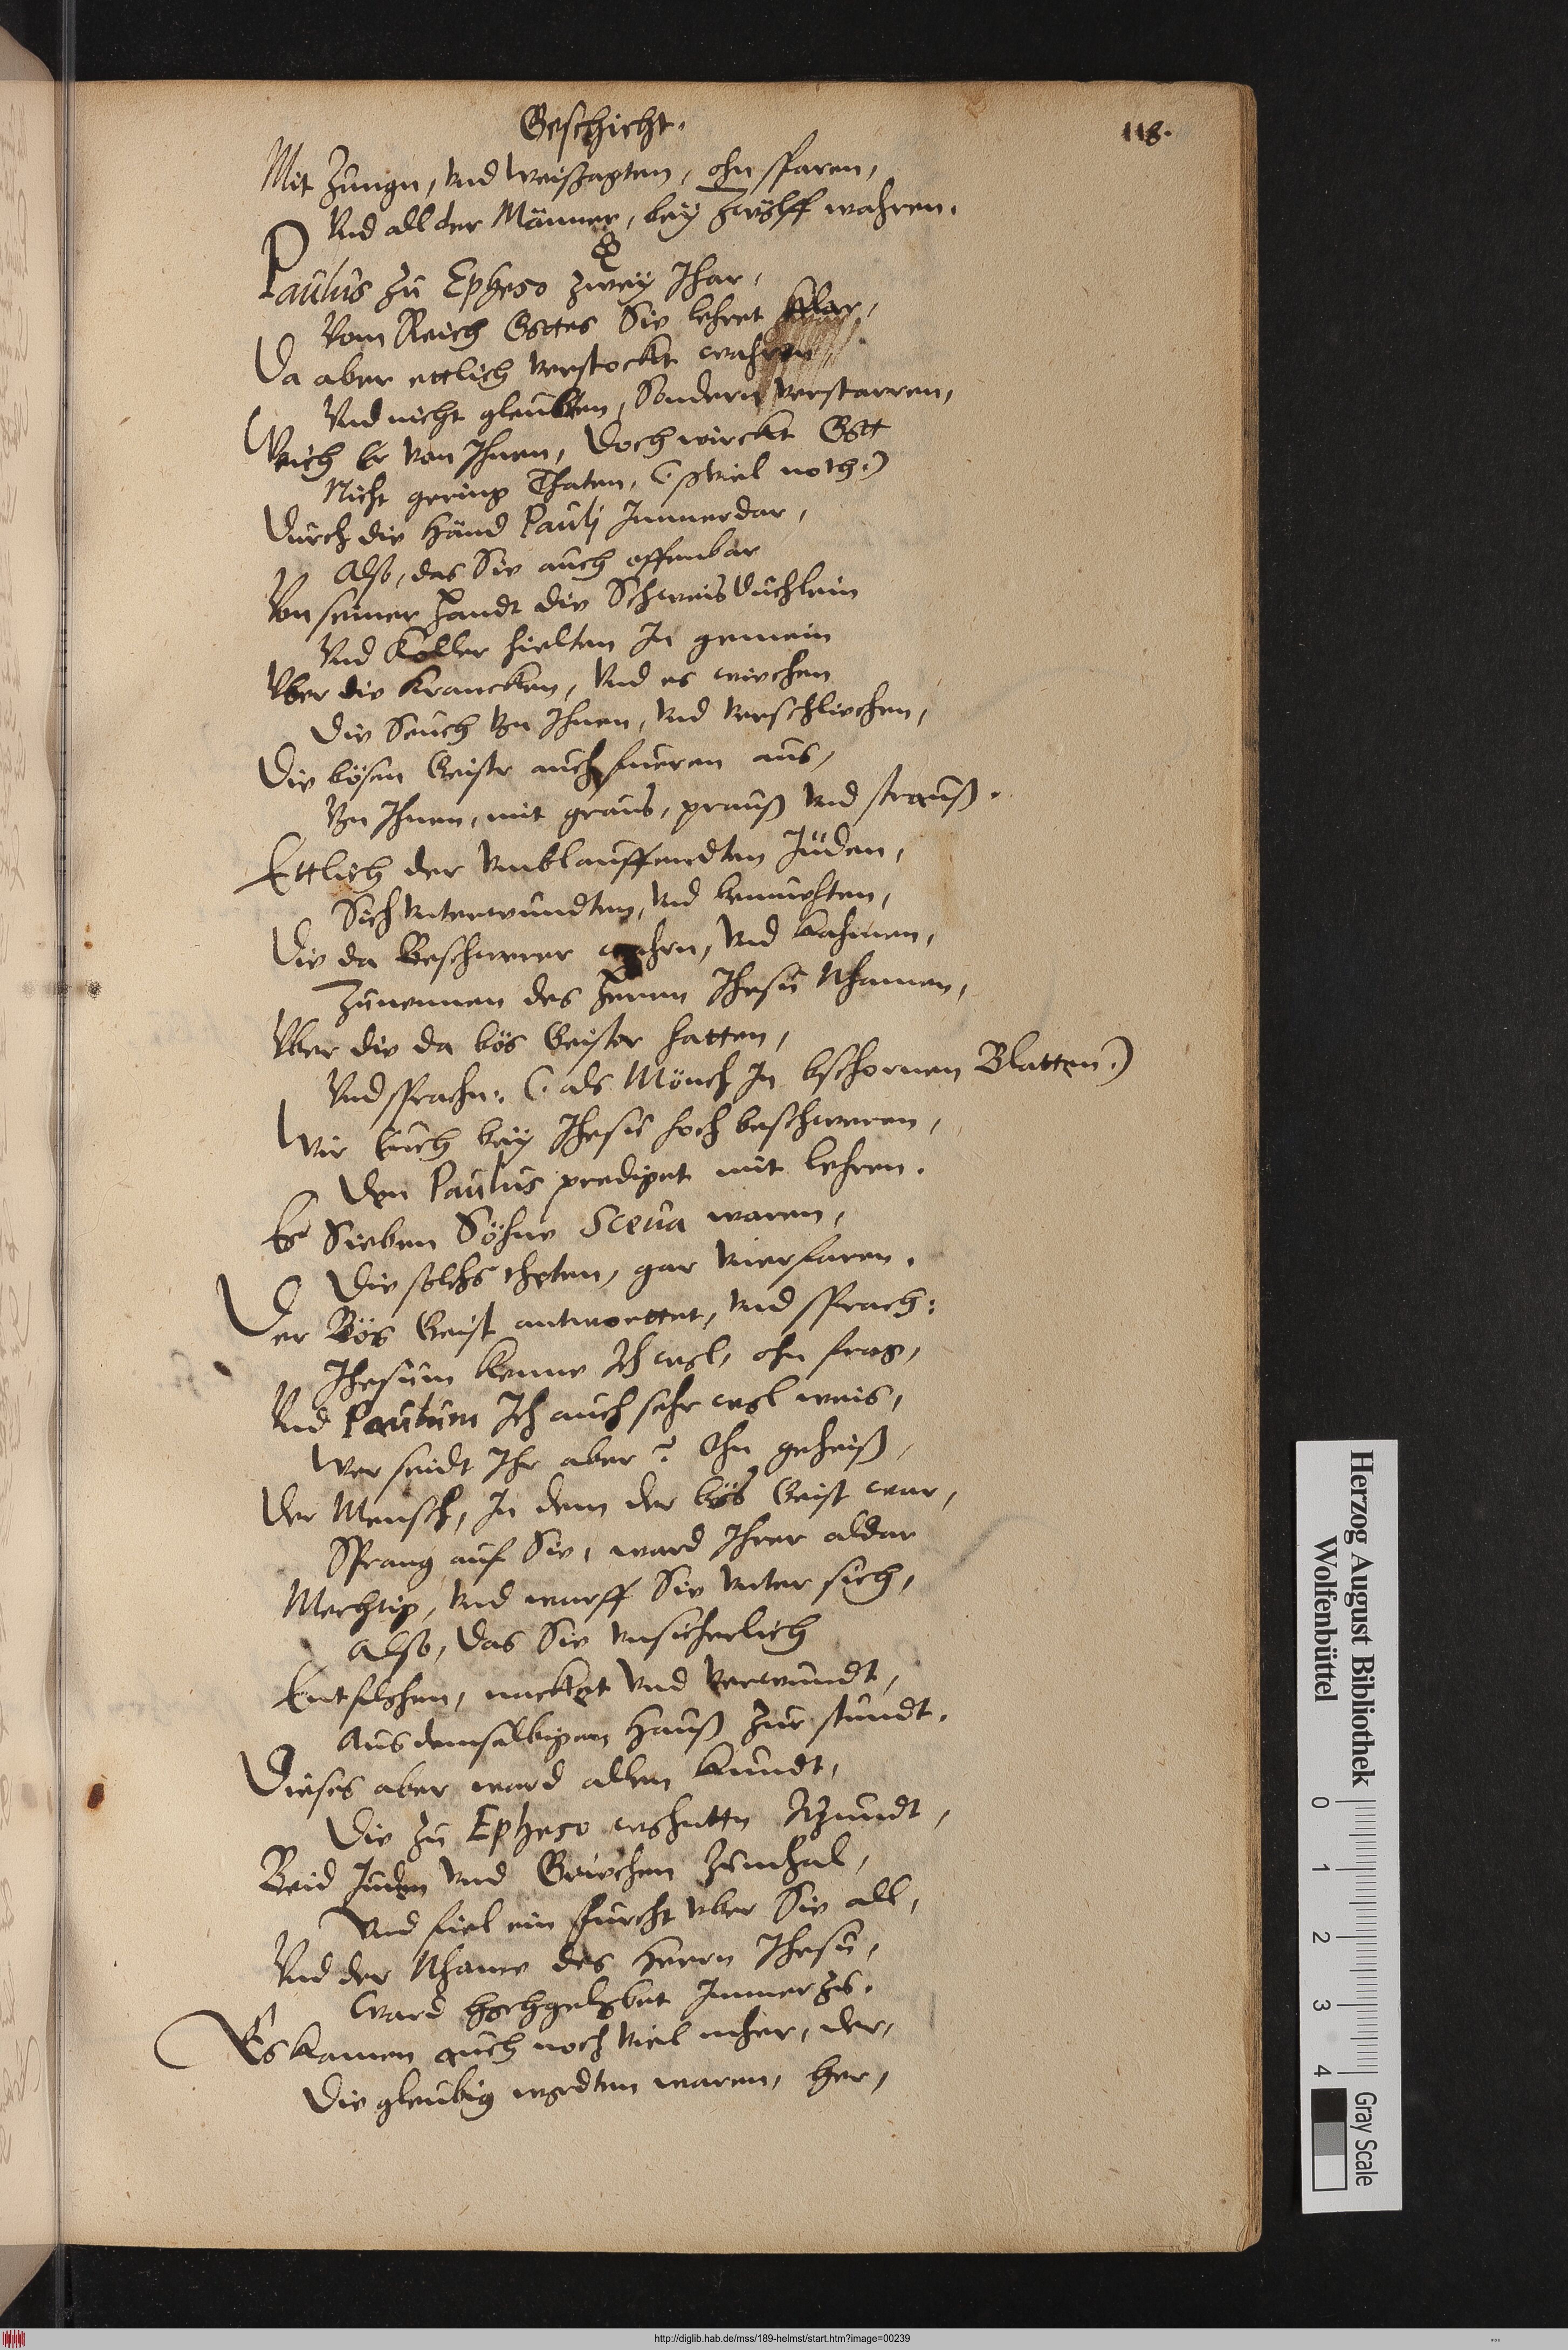 Geschicht.
118.
Mit Zungn, vnd weissagten, ohn sparen,
Vnd all der Männer, bey Zwölff wahren.
Paulus zu Epheso zwey Jhar,
Vom Reich Gottes Sie lehret klar,
Da aber ettlich verstockt wahren,
Vnd nicht gleubten, Sondern verstarren,
Weich Er von Jhnen, Doch wirckt Gott
Nicht gering Thaten, (. soviel noth.)
Durch die Händ Paulj Jmmerdar,
Also, das Sie auch offenbar
Von seiner Haudt die Schweisduchlein
Vnd Koller hielten Jn gemein
Vber die Krancken, Vnd es wiechen
Die Seuch von Jhnen, vnd verschliechen,
Die bösen Geistr auch fueren aus,
Von Jhnen, mit graus, prauß vnd strauß.
Ettlich der vmblauffendten Jüden,
Sich vnterwundten, vnd bemuehten,
Die da Beschwerer wahrn, vnd kahmen,
Zunennen des Herrn Jhesu Nhamen,
Vber die da bös Geister hatten,
Vnd sprachn: (. als Mönch Jn bschornen Blatten.)
Wir Euch bey Jhesu hoch beschweren,
Den Paulus prediget mit lehren.
Es Sieben Söhne Sceua waren,
Die solchs theten, gar vnerfaren.
Der Bös Geist antworttet, vnd sprach:
Jhesum kenne Jch wol, ohn frag,
Vnd Paulum Jch auch sehr wol weis,
Wer seidt Jhr aber? Ohn geheiß,
Der Mensch, Jn dem der bös Geist war,
Sprang auf Sie, ward Jhrer aldar
Mechtig, vnd warff Sie vnter sich,
Also, das Sie vnsicherlich
Entflohen, nacket vnd verwundt,
Aus demselbigen Hauß zur stundt.
Dieses aber ward allen kundt,
Die zu Epheso wohnttn Jtzundt,
Beid Juden vnd Griechen zumhal,
Vnd fiel ein furcht vber Sie all,
Vnd der Nhame des Herrn Jhesu,
Ward hochgelobet Jmmerzu.
Es kamen auch noch viel mher, der,
Die gleubig wordten waren, her,
Herzog August Bibliothek
Wolfenbüttel
0 1 2 3 4
Gray Scale
http://diglib.hab.de/mss/189-helmst/start.htm?image=00239